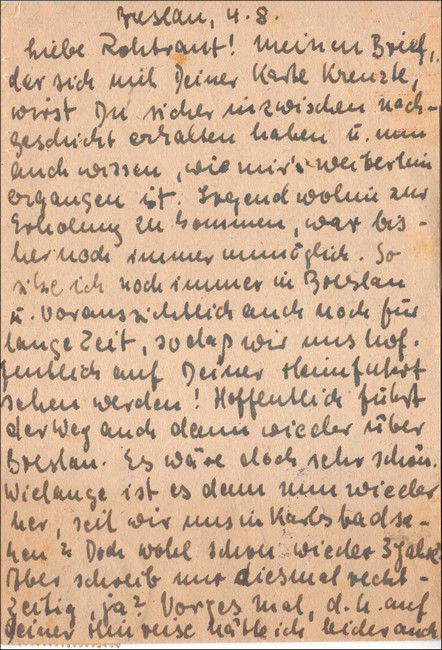 Breslau, 4.8.
Liebe Rohtraut! Meinen Brief,
der sich mit Deiner Karte kreuzte,
wirst Du sicher inzwischen nach-
geschickt erhalten haben u. nun
auch wissen, wie mir's weiterhin
ergangen ist. Irgendwohin zur
Erholung zu kommen, war bis-
her noch immer unmöglich. So
sitze ich noch immer in Breslau
u. voraussichtlich auch noch für
lange Zeit, sodaß wir uns hof-
fentlich auf Deiner Heimfahrt
sehen werden! Hoffentlich führt
der Weg auch dann wieder über
Breslau. Es wäre doch sehr schön.
Wielange ist es denn nun wieder
her, seit wir uns in Karlsbad sa-
hen? Doch wohl schon wieder 3 Jahre?
Aber schreib mir diesmal recht-
zeitig, ja? Voriges mal, d.h. auf
Deiner Hinreise hätte ich leider auch